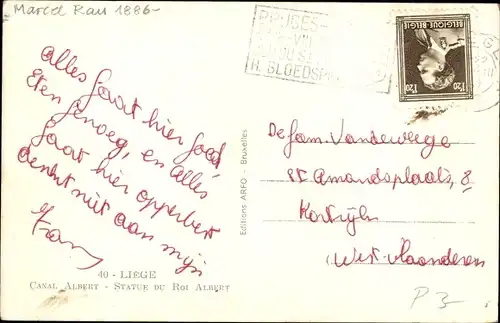 Marcel Rau 1886-
BRUGES-
H. BLOEDSP
BELGIQUE BELGIE
1F20 1F20
Alles gaat hier goed,
Eten genoeg, en alles
gaat hier opperbest
denkt niet aan mijn
Frans
De fam. Vandeweege
St Amandsplaats, 8
Kortrijk
West-Vlaanderen
Editions ARFO - Bruxelles
40 - LIÉGE
CANAL ALBERT - STATUE DU ROI ALBERT
P3-